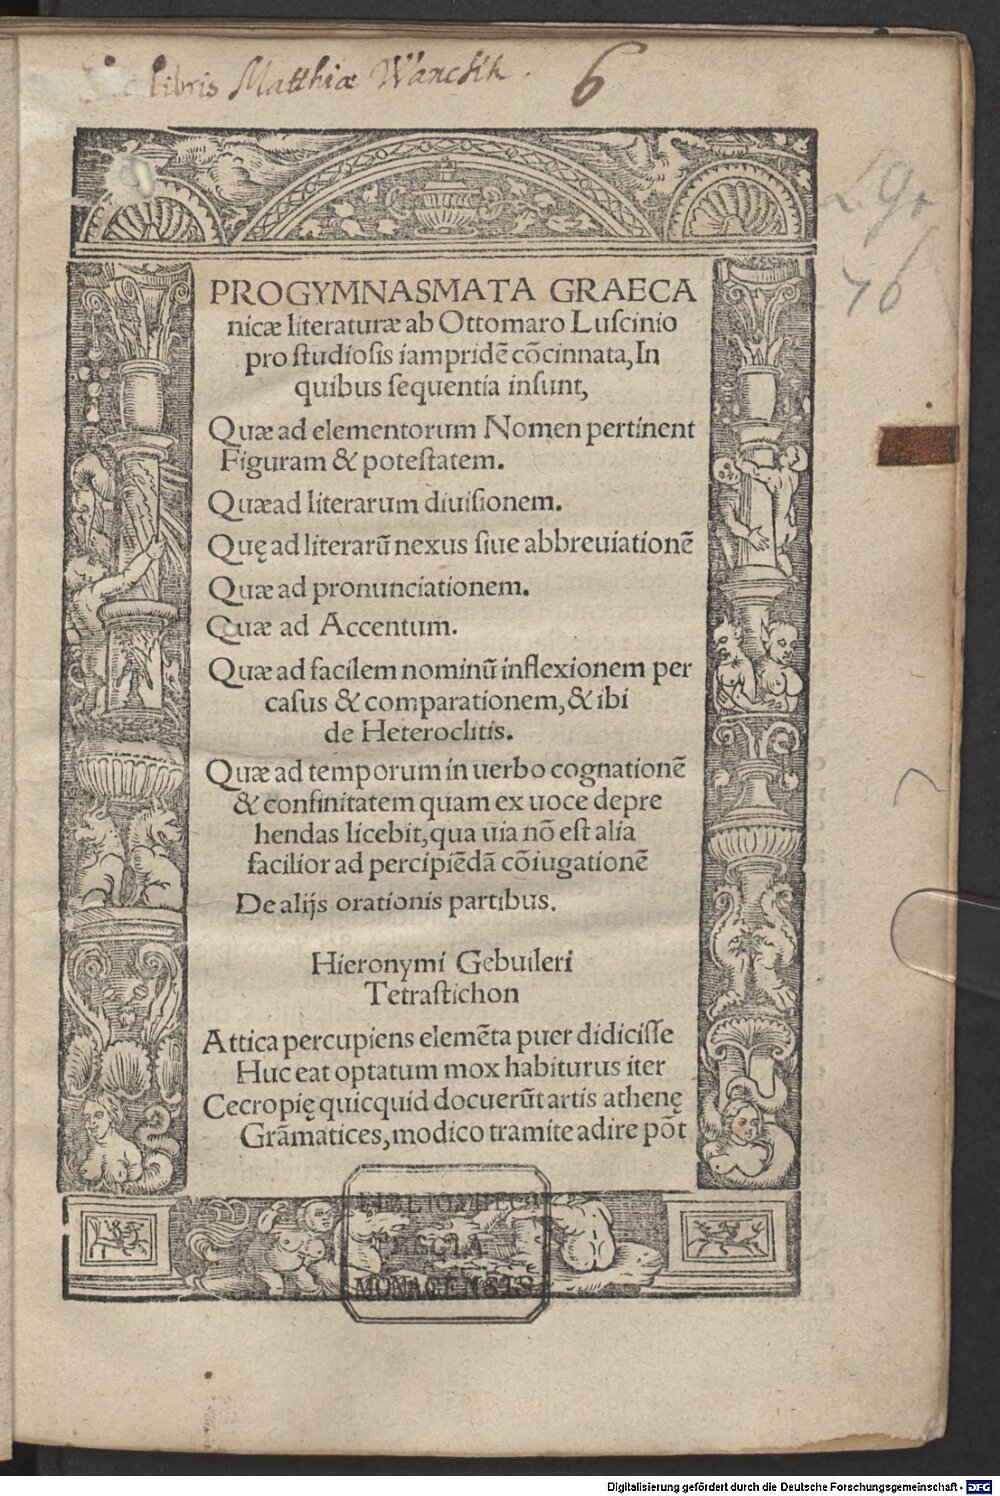 libris Matthiæ Wanckh. 6
L. gr.
76
PROGYMNASMATA GRAECA
nicæ literaturæ ab Ottomaro Luſcinio
pro ſtudioſis iampridē cōcinnata, In
quibus ſequentia inſunt,
Quæ ad elementorum Nomen pertinent
Figuram & poteſtatem.
Quæ ad literarum diuiſionem.
Quę ad literarū nexus ſiue abbreuiationē
Quæ ad pronunciationem.
Quæ ad Accentum.
Quæ ad facilem nominū inflexionem per
caſus & comparationem, & ibi
de Heteroclitis.
Quæ ad temporum in uerbo cognationē
& confinitatem quam ex uoce depre
hendas licebit, qua uia nō eſt alia
facilior ad percipiēdā cōiugationē
De alijs orationis partibus.
Hieronymi Gebuileri
Tetraſtichon
Attica percupiens elemēta puer didiciſſe
Huc eat optatum mox habiturus iter
Cecropię quicquid docuerūt artis athenę
Grāmatices, modico tramite adire pōt
BIBLIOTHECA
REGIA
MONACENSIS
Digitalisierung gefördert durch die Deutsche Forschungsgemeinschaft - DFG